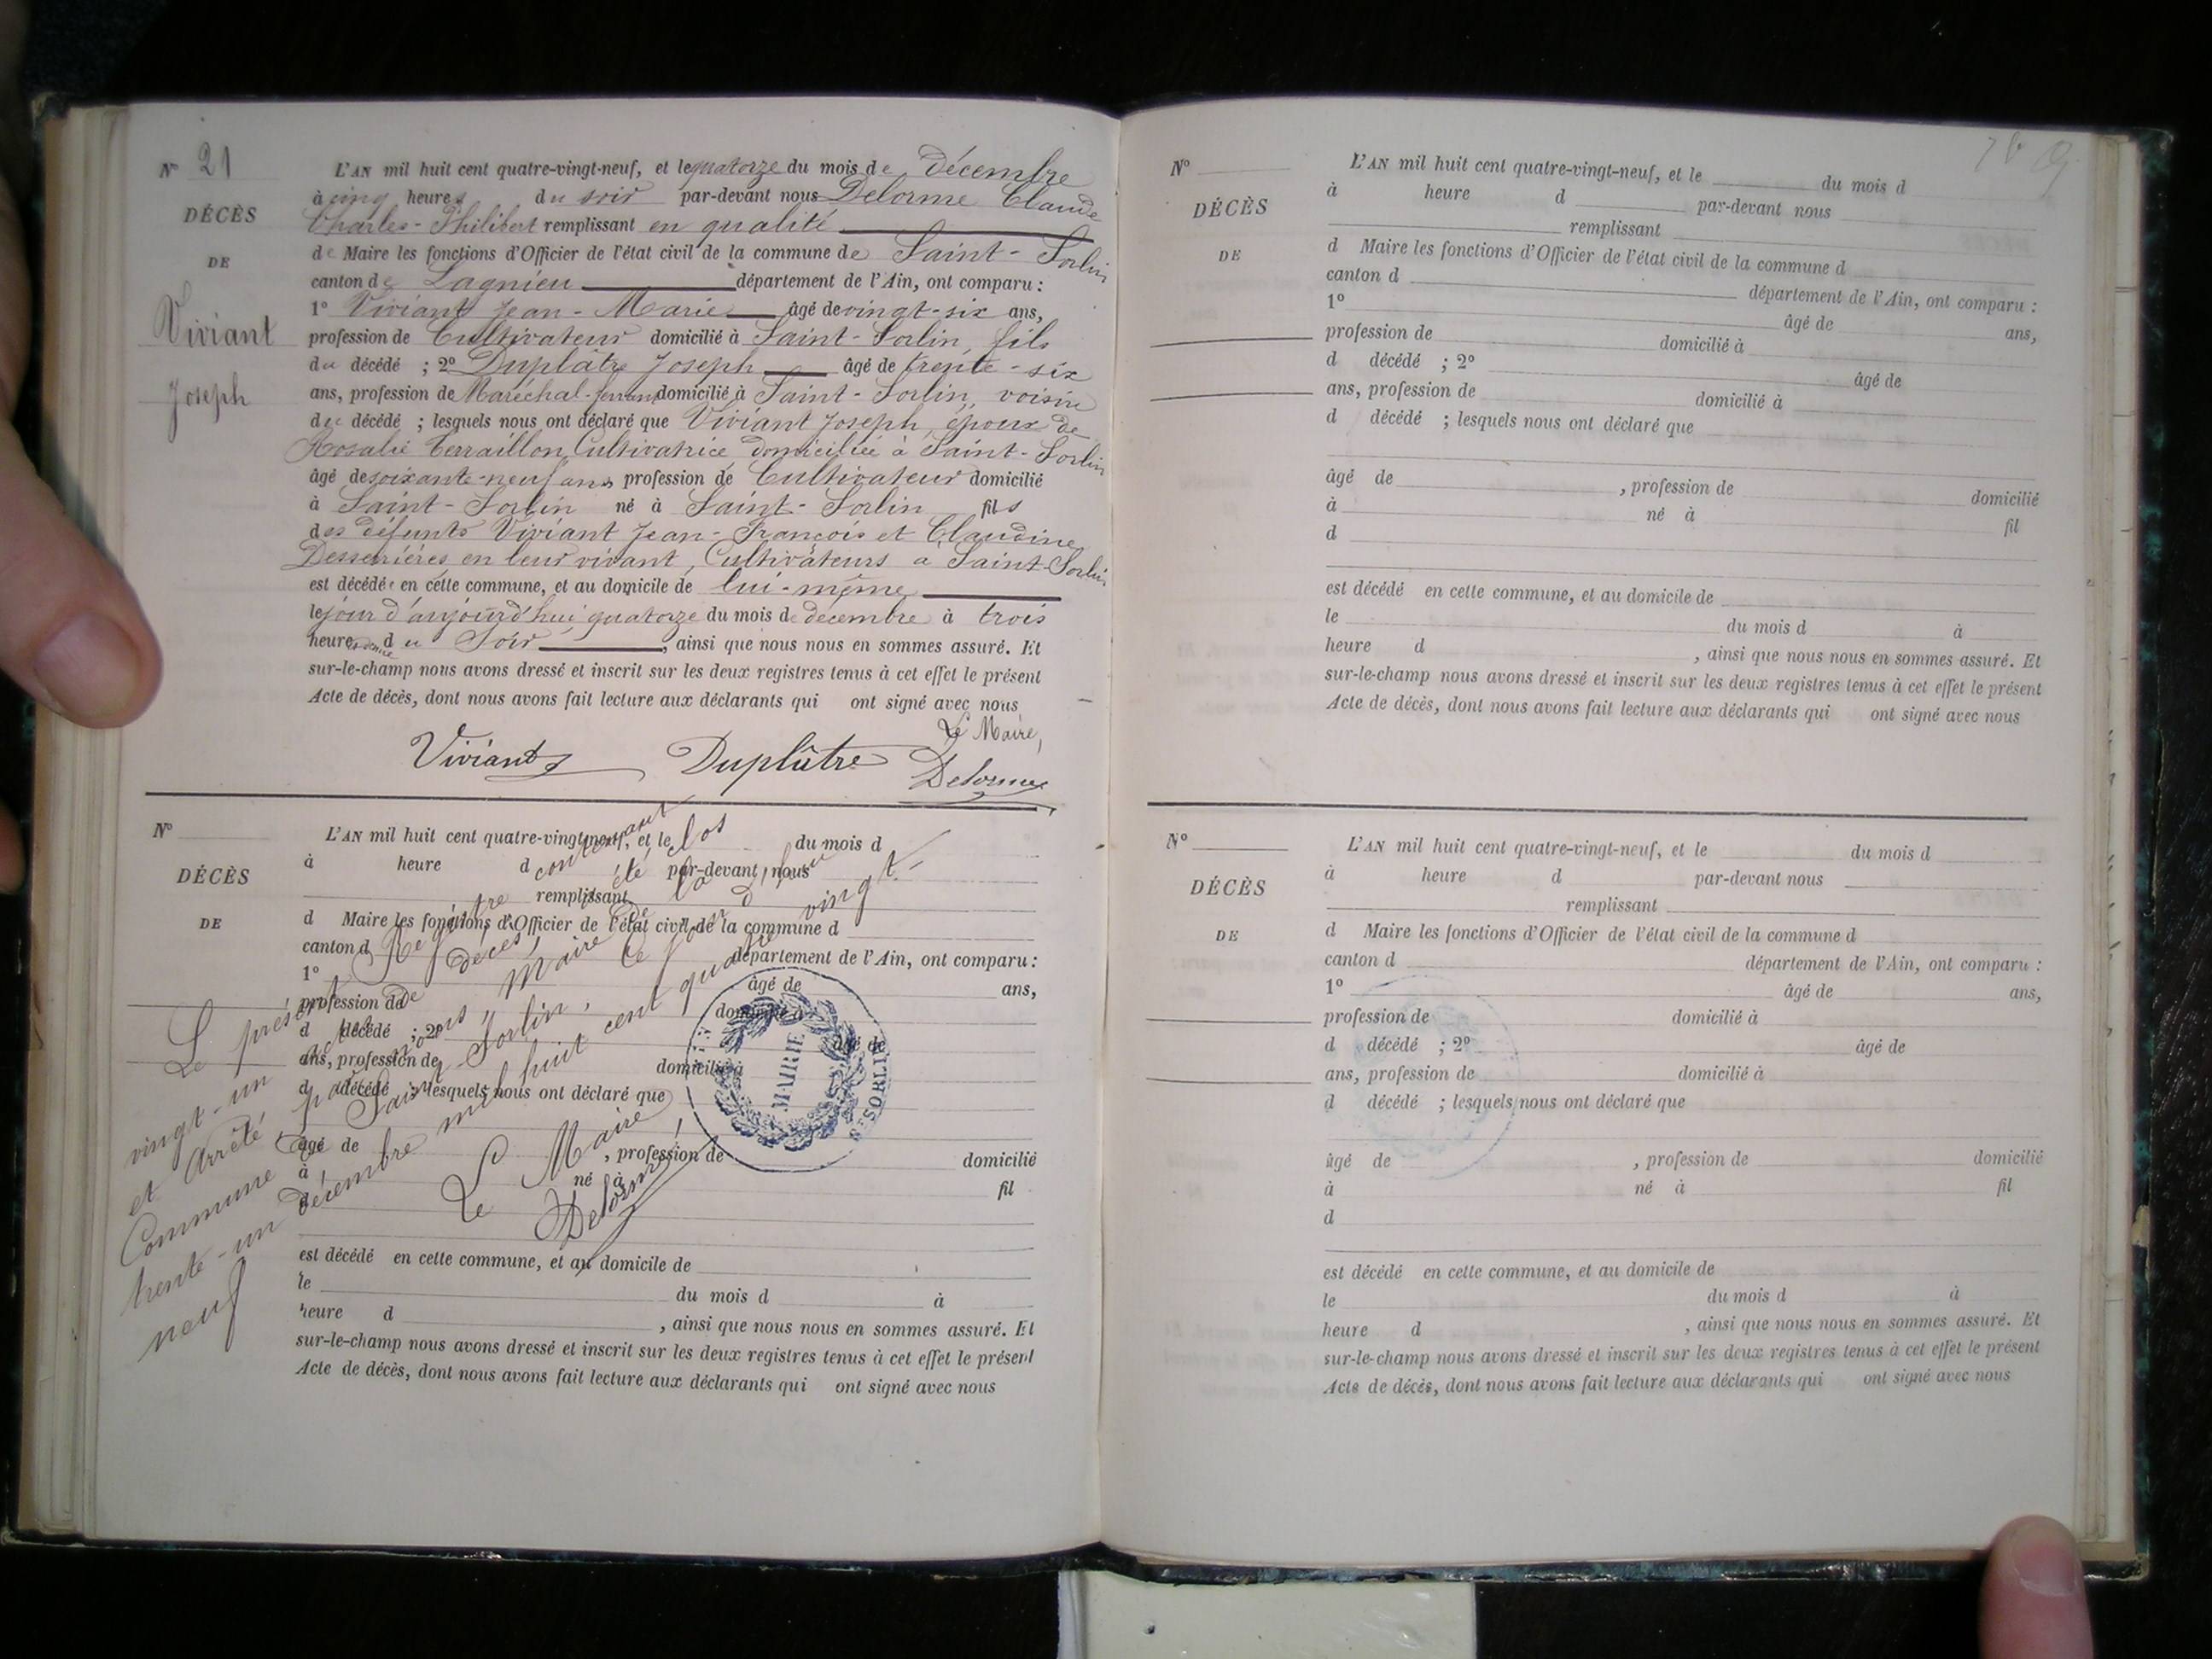 N° 21
DÉCÈS
DE
Viviant
Joseph
L'AN mil huit cent quatre-vingt-neuf, et le quatorze du mois de Décembre
à cinq heures du soir par-devant nous Delorme Claude
Charles-Philibert remplissant en qualité
de Maire les fonctions d'Officier de l'état civil de la commune de Saint-Sorlin
canton de Lagnieu département de l'Ain, ont comparu :
1° Viviant Jean-Marie âgé de vingt-six ans,
profession de Cultivateur domicilié à Saint-Sorlin, fils
du décédé ; 2° Duplâtre Joseph âgé de trente-six
ans, profession de Maréchal-ferrant domicilié à Saint-Sorlin, voisin
du décédé ; lesquels nous ont déclaré que Viviant Joseph, époux de
Rosalie Terraillon, Cultivatrice domiciliée à Saint-Sorlin
âgé de soixante-neuf ans, profession de Cultivateur domicilié
à Saint-Sorlin né à Saint-Sorlin fils
des défunts Viviant Jean-François et Claudine
en leur vivant, Cultivateurs à Saint-Sorlin
est décédé en cette commune, et au domicile de lui-même
le jour d'aujourd'hui quatorze du mois de décembre à trois
heures et demie du Soir, ainsi que nous nous en sommes assuré. Et
sur-le-champ nous avons dressé et inscrit sur les deux registres tenus à cet effet le présent
Acte de décès, dont nous avons fait lecture aux déclarants qui ont signé avec nous
Le Maire,
Viviant Duplâtre Delorme
N°
DÉCÈS
DE
L'AN mil huit cent quatre-vingt-neuf, et le du mois d
à heure d par-devant nous
remplissant
d Maire les fonctions d'Officier de l'état civil de la commune d
canton d département de l'Ain, ont comparu :
1° âgé de ans,
profession de domicilié à
d décédé ; 2° âgé de
ans, profession de domicilié à
d décédé ; lesquels nous ont déclaré que
âgé de , profession de domicilié
à né à fil
d
est décédé en cette commune, et au domicile de
le du mois d à
heure d , ainsi que nous nous en sommes assuré. Et
sur-le-champ nous avons dressé et inscrit sur les deux registres tenus à cet effet le présent
Acte de décès, dont nous avons fait lecture aux déclarants qui ont signé avec nous
Le présent Registre contenant
vingt-un actes de décès, a été clos
et Arrêté par nous, Maire de la
Commune de Saint-Sorlin, ce jourd'hui
trente-un décembre mil huit cent quatre vingt-
neuf
Le Maire
Delorme
MAIRIE
N°
DÉCÈS
DE
L'AN mil huit cent quatre-vingt-neuf, et le du mois d
à heure d par-devant nous
remplissant
d Maire les fonctions d'Officier de l'état civil de la commune d
canton d département de l'Ain, ont comparu :
1° âgé de ans,
profession de domicilié à
d décédé ; 2° âgé de
ans, profession de domicilié à
d décédé ; lesquels nous ont déclaré que
âgé de , profession de domicilié
à né à fil
d
est décédé en cette commune, et au domicile de
le du mois d à
heure d , ainsi que nous nous en sommes assuré. Et
sur-le-champ nous avons dressé et inscrit sur les deux registres tenus à cet effet le présent
Acte de décès, dont nous avons fait lecture aux déclarants qui ont signé avec nous
N°
DÉCÈS
DE
L'AN mil huit cent quatre-vingt-neuf, et le du mois d
à heure d par-devant nous
remplissant
d Maire les fonctions d'Officier de l'état civil de la commune d
canton d département de l'Ain, ont comparu :
1° âgé de ans,
profession de domicilié à
d décédé ; 2° âgé de
ans, profession de domicilié à
d décédé ; lesquels nous ont déclaré que
âgé de , profession de domicilié
à né à fil
d
est décédé en cette commune, et au domicile de
le du mois d à
heure d , ainsi que nous nous en sommes assuré. Et
sur-le-champ nous avons dressé et inscrit sur les deux registres tenus à cet effet le présent
Acte de décès, dont nous avons fait lecture aux déclarants qui ont signé avec nous